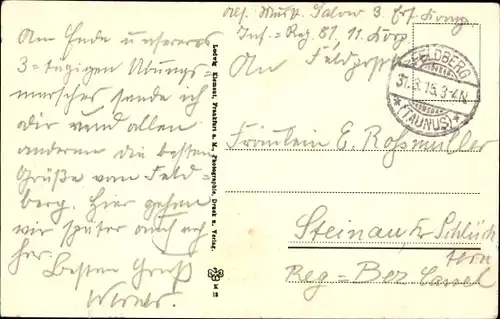 Am Ende unseres
3=tägigen Übungs=
marsches sende ich
Dir und allen
anderen die besten
Grüße vom Feld=
berg. Hier gehen
wir später auch
her.
Besten Gruß
Werner.
Ludwig Klement, Frankfurt a. M., Photographie, Druck u. Verlag.
K 18
Abs. Musk. Salow 3. Ers. Komp
Inf.=Reg. 81, 11. Korp
An Feldpost
FELDBERG
31.3.15. 3-4 N
*(TAUNUS)*
Fräulein E. Roßmüller
Steinau Kr Schlüch
tern
Reg=Bez Cassel